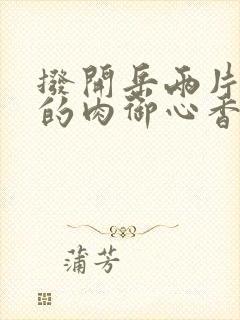 撥開岳兩片
的肉御心香
蒲芳